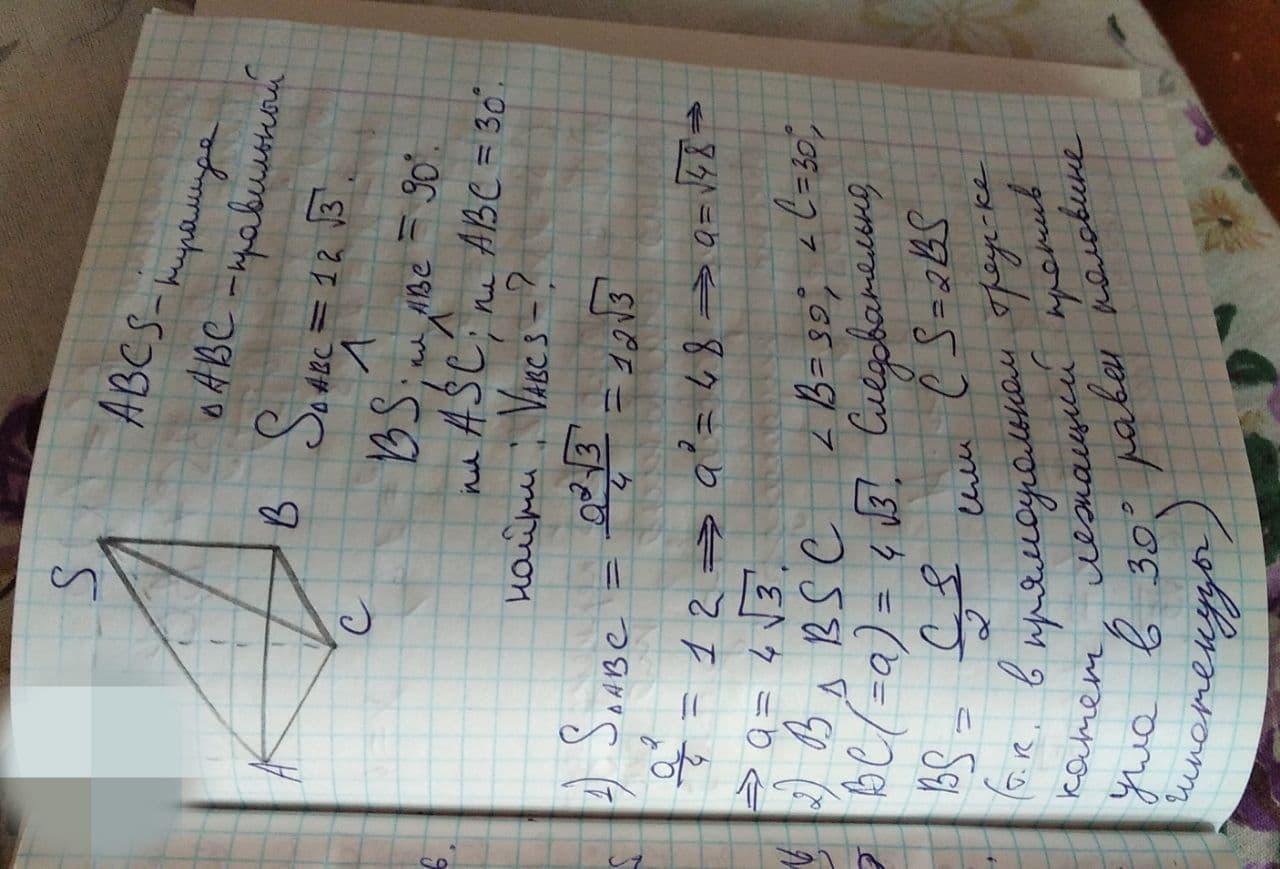 S
A
B
C
ABCS – пирамида
△ABC – правильный
S△ABC = 12√3.
BS ^ пл ABC = 90°.
пл ASC ^ пл ABC = 30°.
Найти: VABCS – ?
1) S△ABC = a²√3/4 = 12√3
a²/4 = 12 ⇒ a² = 48 ⇒ a = √48 ⇒
⇒ a = 4√3.
2) В △ BSC ∠B = 90°, ∠C = 30°,
BC (= a) = 4√3. Следовательно,
BS = CS/2 или CS = 2BS
(т.к. в прямоугольном треуг-ке
катет лежащий против
угла в 30° равен половине
гипотенузы)
6.